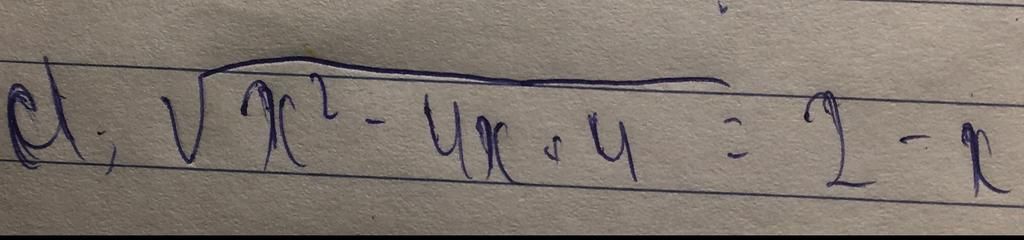 d; √x² - 4x + 4 = 2 - x